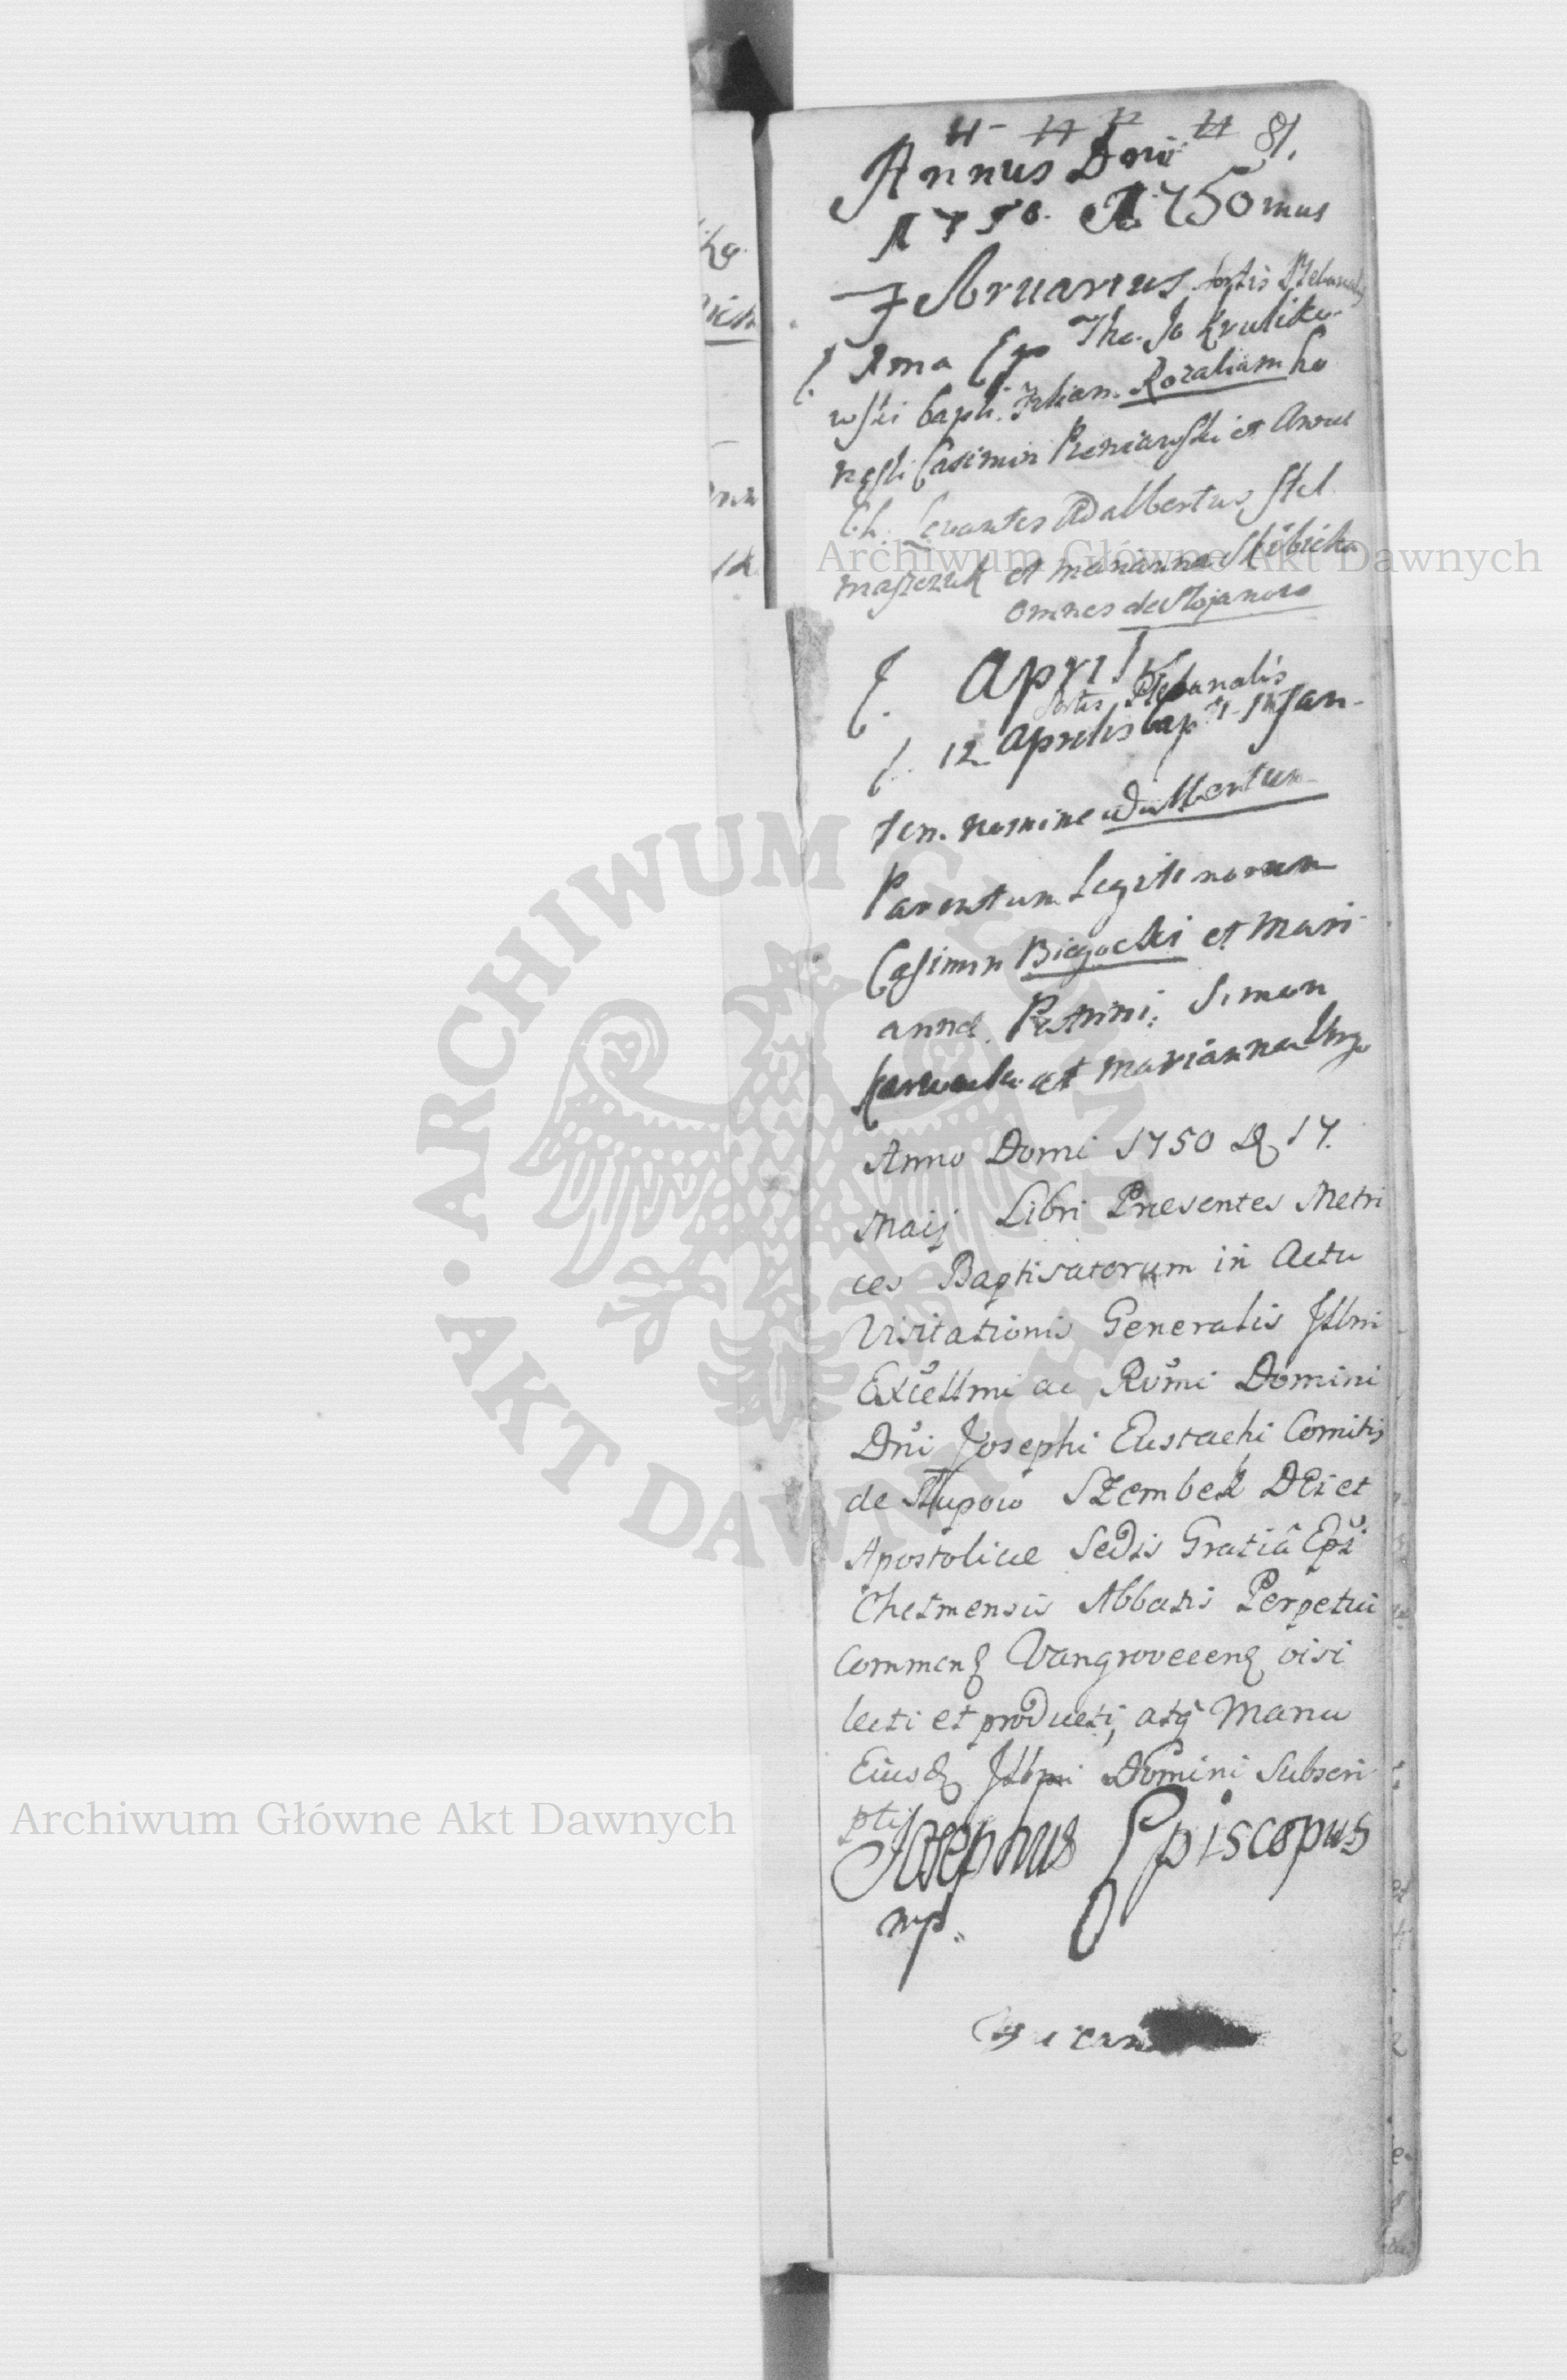 81.
Annus Dni
1750. 1750mus
Februarius sortis Plebanalis
1ma Ego Tho. Jo Kruliko
wski bapt. filiam Rozaliam ho
nesti Casimiri et Annae
Levantes Adalbertus Stel
maszczuk et Marianna Skibicka
omnes de Stojanow
April
sortis Plebanalis
12 Aprilis bapt. Infan-
tem nomine Adalbertum
Parentum Legitimorum
Casimiri Biegacki et Mari
annae. Patrini: Simon
et Marianna
Anno Domi 1750 D 17.
Maij Libri Praesentes Metri
ces Baptisatorum in Actu
Visitationis Generalis Jllmi
Excellmi ac Rvmi Domini
Dni Josephi Eustachi Comitis
de Słupow Szembek DEi et
Apostolicae Sedis Gratiâ Epi
Chelmensis Abbatis Perpetui
Commen Vangrovecen visi
lecti et producti, atq Manu
Eiusd Jllmi Domini Subscri
pti
Josephus Episcopus
mp.
Archiwum Główne Akt Dawnych
Archiwum Główne Akt Dawnych
ARCHIWUM GŁÓWNE AKT DAWNYCH